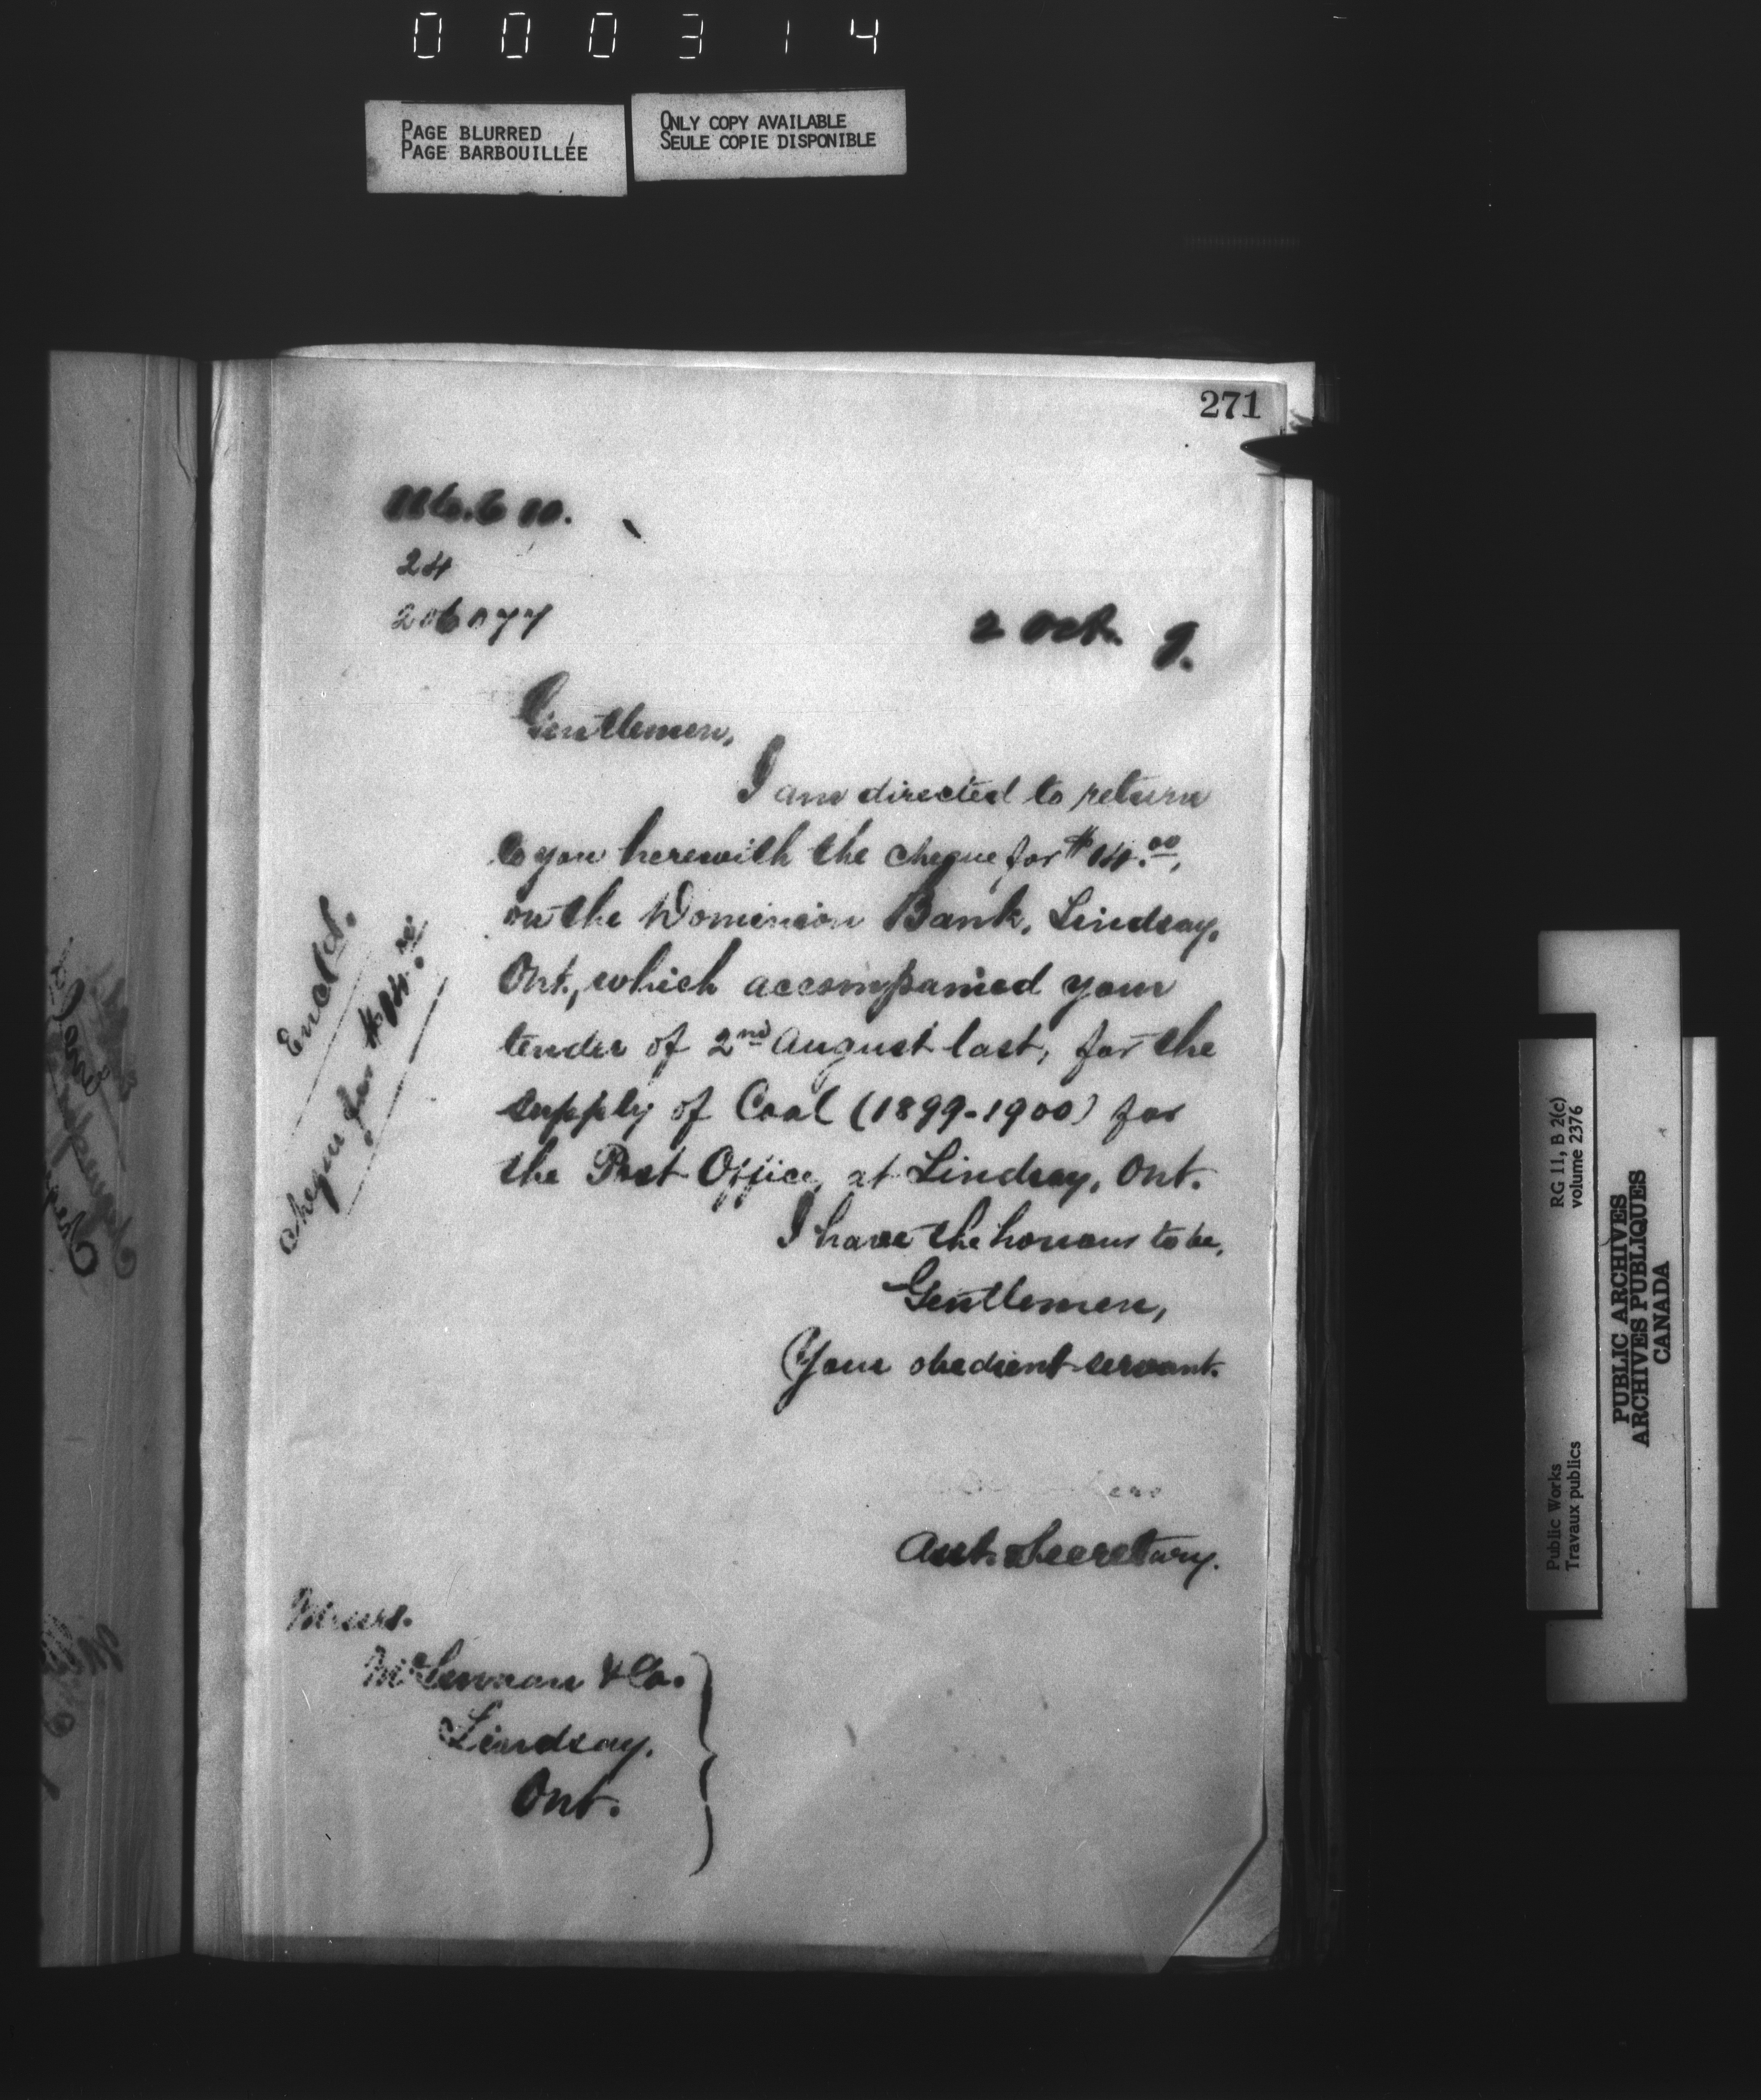 000314
PAGE BLURRED
PAGE BARBOUILLÉE
ONLY COPY AVAILABLE
SEULE COPIE DISPONIBLE
271
24
206077
2 Oct. 9.
Gentlemen,
I am directed to return
to you herewith the cheque for $14.00,
on the Dominion Bank, Lindsay,
Ont., which accompanied your
tender of 2nd August last, for the
supply of Coal (1899-1900) for
the Post Office, at Lindsay, Ont.
I have the honour to be,
Gentlemen,
Your obedient servant.
Asst. Secretary.
Messrs.
McLennan & Co.
Lindsay.
Ont.
Encld.
Cheque for $14.00
Public Works
Travaux publics
RG 11, B 2(c)
volume 2376
PUBLIC ARCHIVES
ARCHIVES PUBLIQUES
CANADA